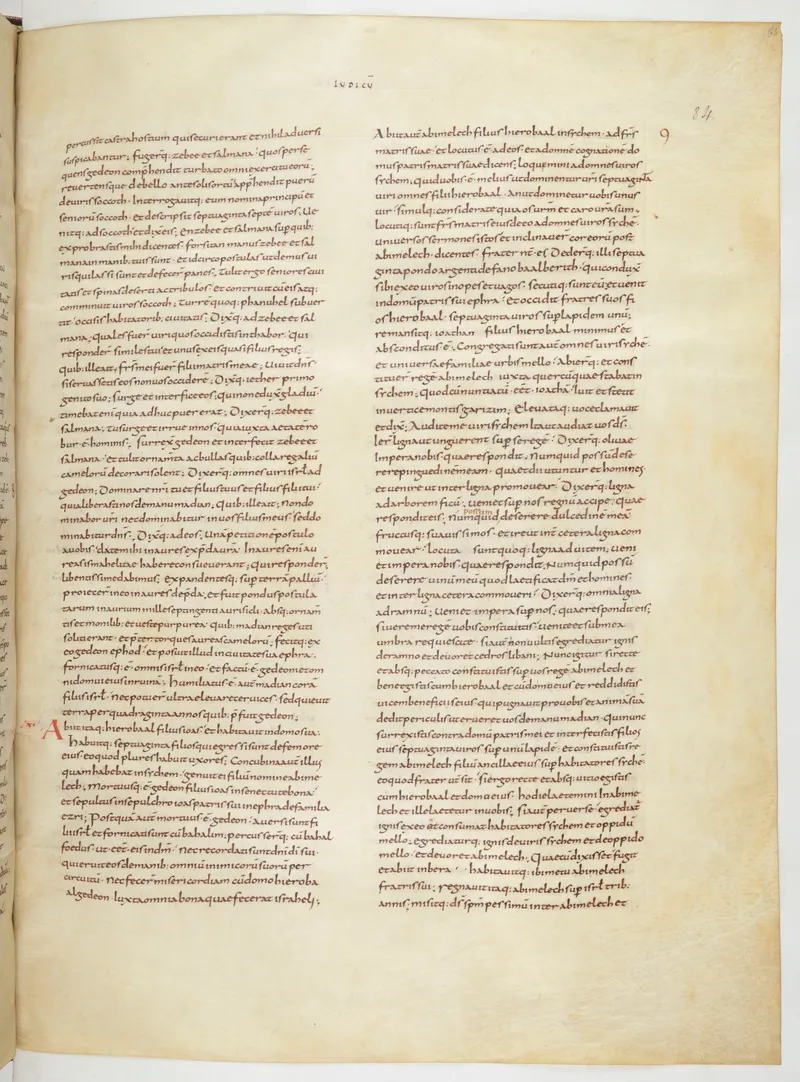 IUDICU̅
84
percussit castra hostium qui securi erant et nihil aduersi
suspicabantur; fugerq; zebee et salmana; quos perse
quens gedeon comp̅hendit turbato omni exercitu eoru̅;
reuertensque de bello ante solis ortu̅ app̅hendit pueru̅
de uiris soccoth; Interrogauitq; eum nomina principu̅ et
senioru̅ soccoth; et descripsit septuaginta septe̅ uiros; Ue
nitq; ad soccoth et dixit eis; En zebee et salmana sup quib;
exprobrastis mihi dicentes; forsitan manus zebee et sal
mana in manib; tuis sunt; et idcirco postulas ut demus ui
ris qui lassi sunt et defecer̅ panes; Tulit ergo seniores ciui
tatis et spinas deserti ac tribulos; et contriuit cu̅ eis atq;
comminuit uiros soccoth; turre̅ quoq; phanuhel subuer
tit; occisis habitatorib; ciuitatis; Dixitq; ad zebee et sal
mana; quales fuer̅ uiri quos occidistis in thabor; Qui
responder̅; similes tui et unus ex eis quasi filius regis;
quib; ille ait; fr̅s mei fuer̅ filii matris meae; Uiuit dn̅s
si seruassetis eos non uos occidere̅; Dixitq; iether primo
genito suo; surge et interfice eos; qui non eduxit gladiu̅;
timebat eni̅ quia adhuc puer erat; Dixerq; zebee et
salmana; tu surge et irrue in nos quia iuxta aetate̅ ro
bur e̅ hominis; surrexit gedeon et interfecit zebee et
salmana; et tulit ornam̅ta ac bullas quib; colla regaliu̅
cameloru̅ decorari solent; Dixerq; omnes uiri isrl̅ ad
gedeon; Dominare nr̅i tu et filius tuus et filius filii tui;
quia liberasti nos de manu madian; Quib; ille ait; Non do
minabor uri nec dominabitur in uos filius meus; sed do
minabitur dn̅s; Dixitq; ad eos; Una̅ petitione̅ postulo
a uobis; date mihi inaures ex p̅da ura̅; Inaures eni̅ au
reas ismahelitae habere consueuerant; qui responder̅;
libentissime dabimus; expandentesq; sup terra̅ palliu̅;
proiecer̅ in eo inaures de p̅da; et fuit pondus postula
tarum inaurium mille septingenti auri sicli; absq; ornam̅
tis et monilib; et ueste purpurea; quib; madian reges uti
soliti erant; et p̅ter torques aureas cameloru̅; fecitq; ex
eo gedeon ephod; et posuit illud in ciuitate sua ephra;
fornicatusq; e̅ omnis isrl̅ in eo; et factu̅ e̅ gedeoni et om
ni domui eius in ruina̅; Humiliatus e̅ aut̅ madian cora̅
filiis isrl̅; nec potuer̅ ultra eleuare ceruices; sed quieuit
terra per quadraginta annos quib; p̅fuit gedeon;
Abiit itaq; hierobaal filius ioas et habitauit in domo sua;
Habuitq; septuaginta filios qui egressi sunt de femore
eius eo quod plures habuit uxores; Concubina aut̅ illius
quam habebat in sychem; genuit ei filiu̅ nomine abime
lech; Mortuusq; e̅ gedeon filius ioas in senecta bona;
et sepultus in sepulchro ioas patris sui in ephra de familia
ezri; Postqua̅ aut̅ mortuus e̅ gedeon; auersi sunt fi
lii isrl̅ et fornicati sunt cu̅ babalim; percusserq; cu̅ babal
foedus; ut e̅et; eis in dm̅; nec recordati sunt dn̅i di̅ sui;
qui eruit eos de manib; omniu̅ inimicoru̅ suoru̅ per
circuitu̅; nec fecer̅ misericordiam cu̅ domo hieroba
al gedeon; Iuxta omnia bona quae fecerat israheli;
9
Abiit aut̅ abimelech filius hierobaal in sychem; ad fr̅s
matris suae; et locutus e̅ ad eos et ad omne̅ cognatione̅ do
mus patris matris suae dicens; loquemini ad omnes uiros
sychem; quid uobis e̅ melius ut dominentur uri septuaginta
uiri omnes filii hierobaal; An ut dominetur uobis unus
uir; simulq; considerate quia os uru̅ et caro ura sum;
locutiq; sunt fr̅s matris eius de eo ad omnes uiros syche̅;
uniuersos sermones istos et inclinauer̅ cor eoru̅ post
abimelech; dicentes; frater nr̅ e̅; Dederq; illi septua
ginta pondo argenti de fano baal berith; qui conduxit
sibi ex eo uiros inopes et uagos; secutiq; sunt eu̅ et uenit
in domu̅ patris sui ephra; et occidit fratres suos fi
os hierobaal; septuaginta uiros sup lapidem unu̅;
remansitq; ioathan filius hierobaal minimus et
absconditus e̅; Congregati sunt aut̅ omnes uiri syche̅;
et uniuersae familiae urbis mello; Abierq; et cons
tituer̅ rege̅ abimelech iuxta quercu̅ quae stabat in
sychem; Quod cu̅ nuntiatu̅ e̅et; ioatha̅; iuit et stetit
in uertice montis garizim; Eleuataq; uoce clamauit
et dixit; Audite me uiri sychem ita ut audiat uos ds̅;
Ier̅ ligna ut unguerent sup se rege̅; Dixerq; oliuae
Impera nobis quae respondit; Numquid possu̅ dese
rere pinguedine̅ meam; qua et dii utuntur et homines
et uenire ut inter ligna promouear; Dixerq; ligna
ad arborem ficu̅; ueni et sup nos regnu̅ accipe; quae
respondit eis; numquid possum deserere dulcedine̅ mea̅
fructusq; suauissimos; et ire ut int̅ cetera ligna com
mouear; Locuta sunt quoq; ligna ad uitem; ueni
et impera nobis; quae respondit; Numquid possu̅
deserere uinu̅ meu̅ quod laetificat dm̅ et homines;
et inter ligna cetera commoueri; Dixerq; omnia ligna
ad ramnu̅; Ueni et impera sup nos; quae respondit eis;
si uere me rege̅ uobis constituitis; uenite et sub mea
umbra requiescite; si aut̅ non uultis egrediatur ignis
de ramno et deuoret cedros libani; Nunc igitur si recte
et absq; peccato constituistis sup uos rege̅ abimelech et
bene egistis cum hierobaal et cu̅ domo eius et reddidistis
uice̅ beneficiis eius qui pugnauit pro uobis et anima̅ sua̅
dedit periculis ut erueret uos de manu madian; qui nunc
surrexistis contra domu̅ patris mei et interfecistis filios
eius septuaginta uiros sup unu̅ lapide̅; et constituistis re
gem abimelech filiu̅ ancillae eius sup habitatores syche̅
eo quod frater ur̅ sit; si ergo recte et absq; uitio egistis
cum hierobaal et domo eius; hodie laetemini in abime
lech et ille laetetur in uobis; si aut̅ peruerse egrediat̅
ignis ex eo et consumat habitatores sychem et oppidu̅
mello; egrediaturq; ignis de uiris sychem et de oppido
mello; et deuoret abimelech; Quae cu̅ dixisset fugit
et abiit in bera; habitauitq; ibi metu abimelech
fratris sui; regnauit itaq; abimelech sup isrl̅ trib;
annis; misitq; ds̅ spm̅ pessimu̅ inter abimelech et